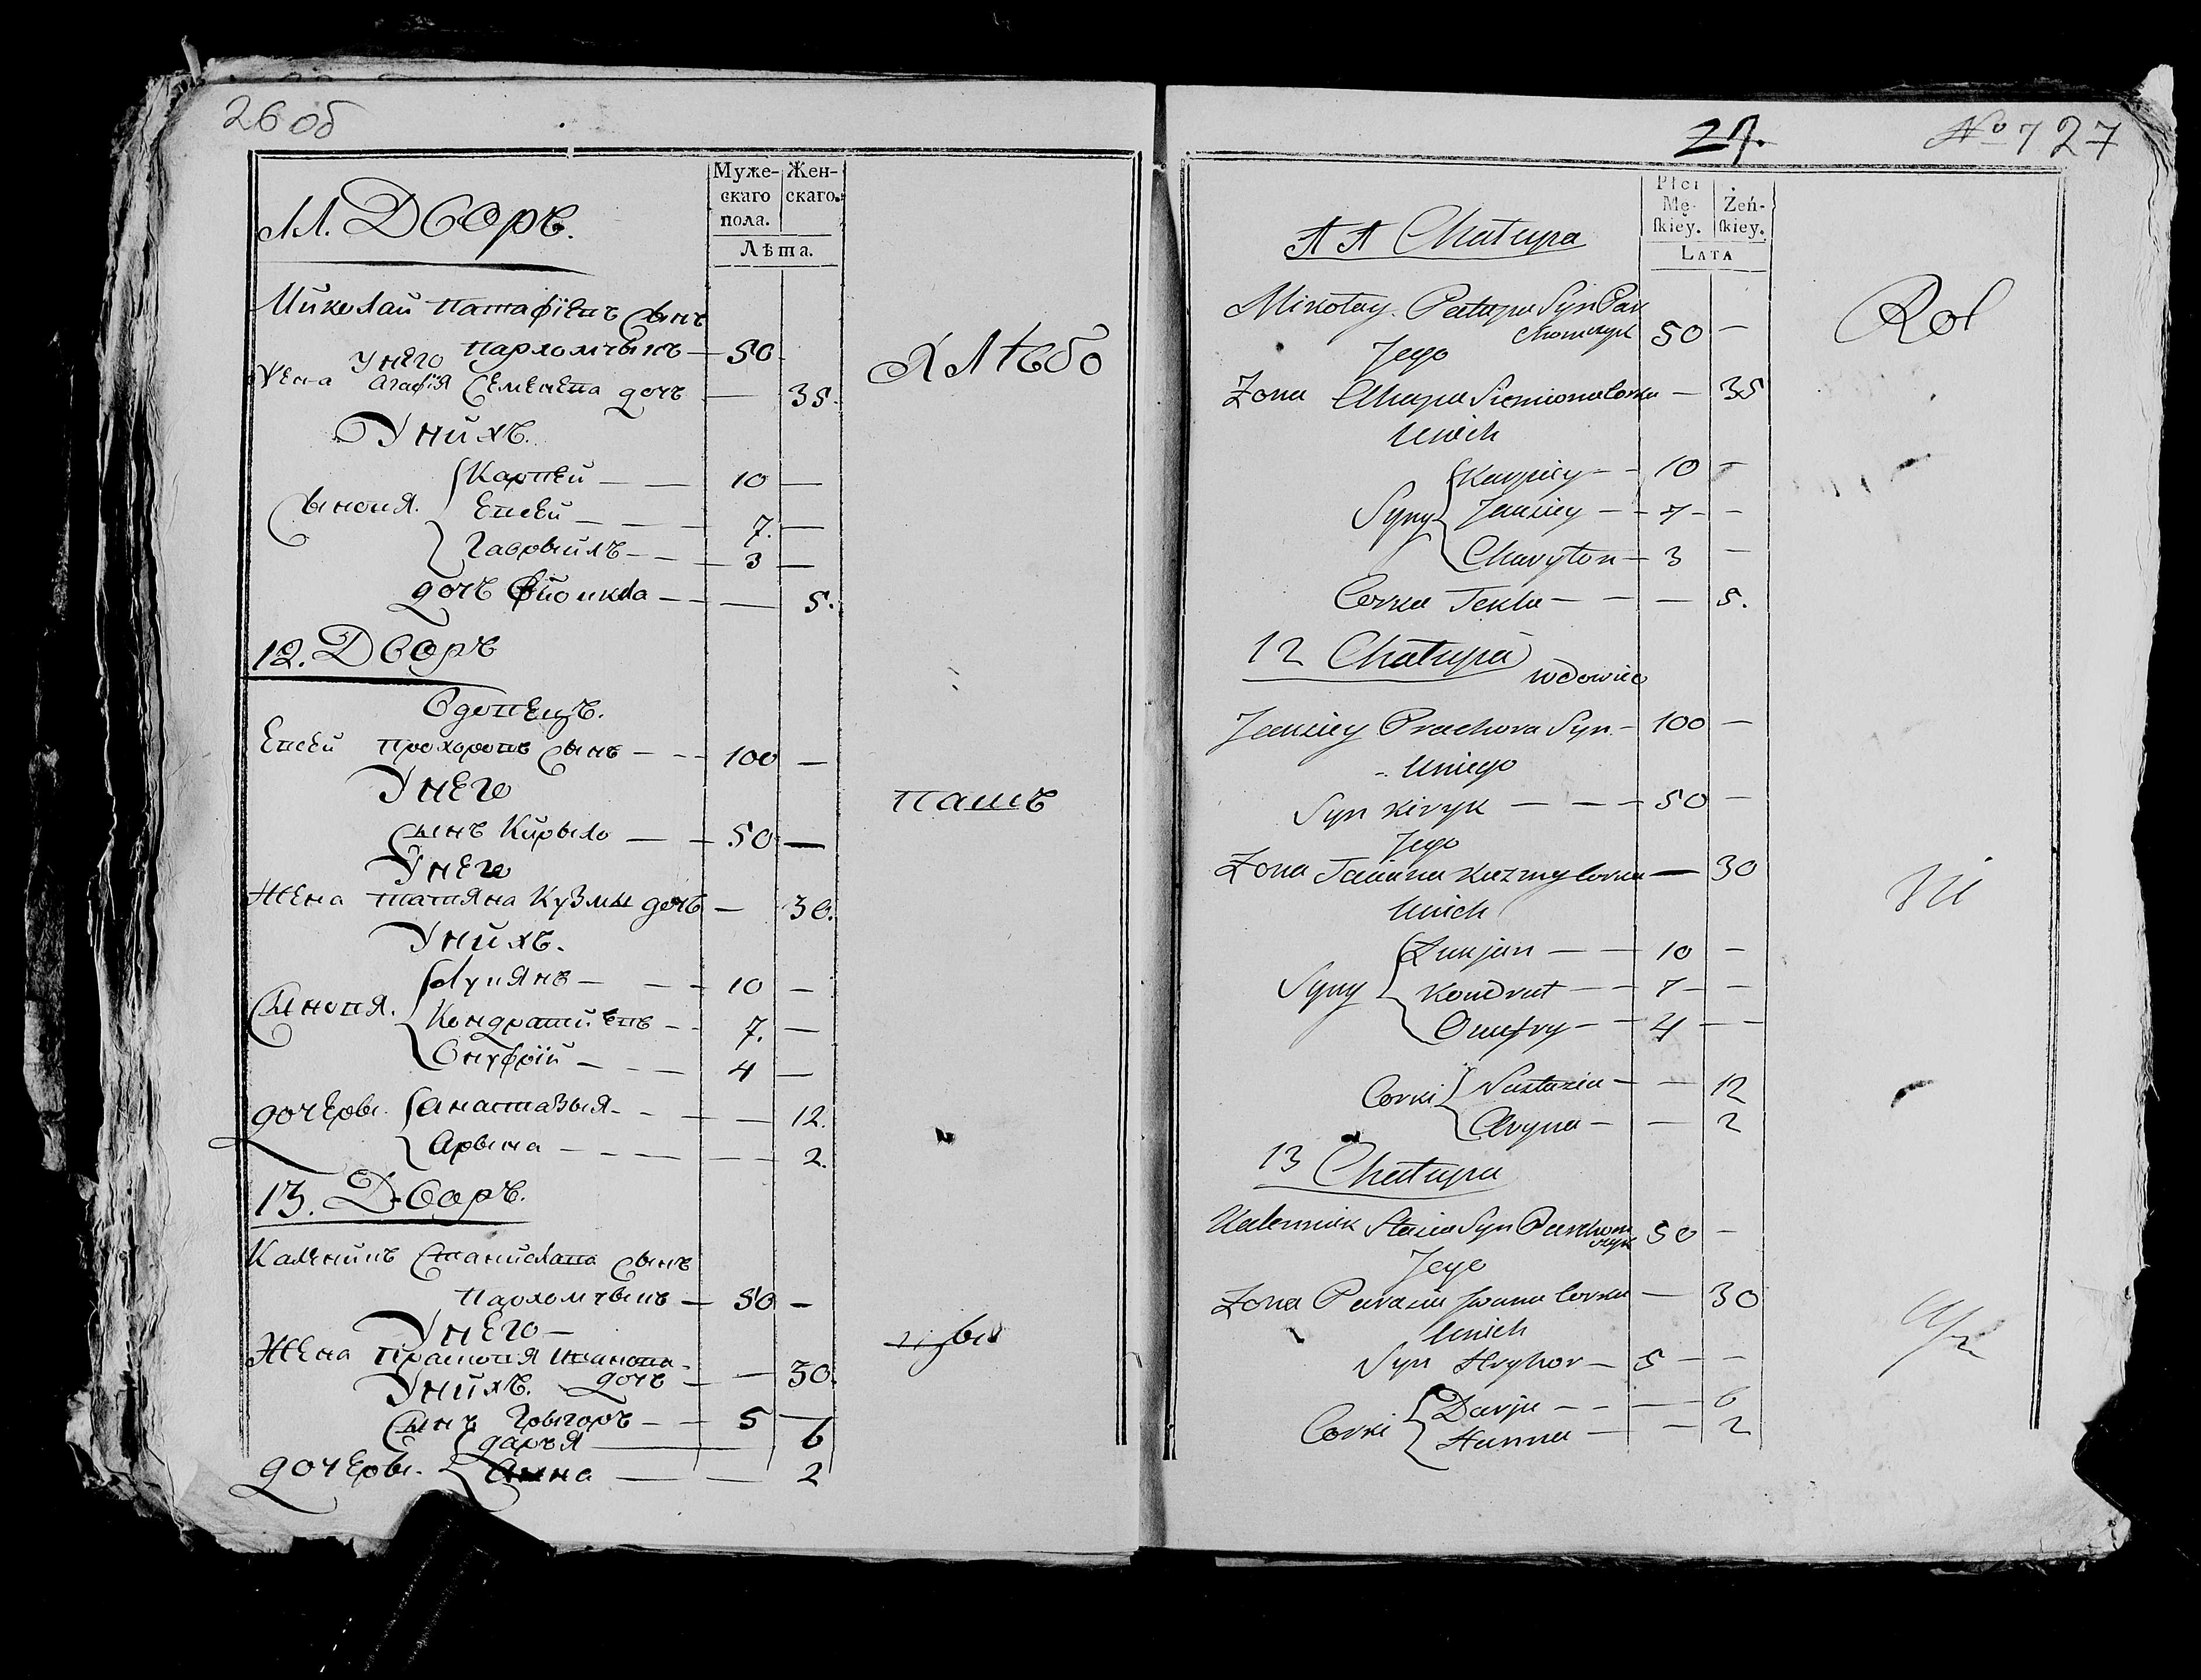 26 об
Муже-
скаго
пола.
Жен-
скаго.
Лѣта.
11. Дворъ.
Николай Патафіевъ Сынъ
Пархомчыкъ — 50
У него
Жена Агафія Семенева дочъ — 35.
У нихъ.
Карпей — — 10 —
Сыновя. Евсей — — — 7. —
Гаврыилъ — — 3 —
дочъ — — — 5.
12. Дворъ
Вдовецъ.
Евсей Прохоровъ Сынъ — — — 100 —
У него
Сынъ Кирыло — — 50 —
У него
Жена Татяна Кузмы дочъ — 30.
У нихъ.
Лукянъ — — — 10 —
Сыновя. Кондратий — — 7. —
Онуфрій — — — 4 —
дочеры. Анастазыя — — — 12.
Арына — — — — — — 2.
13. Дворъ.
Каленикъ Станислава Сынъ
Пархомчыкъ — 50 —
У него —
Жена Прасковя Иванова — 30.
У нихъ. дочъ — —
Сынъ Грыгоръ — — 5 —
дарья — 6
дочеры. Анна — — 2
Хлѣбо
пашъ
27.
№ 7 27
Płci
Mę-
skiey.
Żeń-
skiey.
Lata
11 Chałupa
Mikołay Patapa Syn Par
chomczyk 50 —
Jego
Zona Ahapa Siemiona Corka — 35
Unich
Karpiey — — 10 —
Syny Jeusiey — — 7 — —
Charyton — 3 —
Corka Tekla — — — 5.
12 Chałupa
wdowiec
Jeusiey Prachora Syn — 100 —
Uniego
Syn Kiryk — — — 50 —
Jego
Zona Taciana Kuzmy Corka — 30
Unich
Łukjan — — 10 —
Syny Kondrat — — 7 — —
Onufry — — 4 — —
Corki Nastazia — — 12
Aryna — — 2
13 Chałupa
Kalennik Stasia Syn Parchom
czyk 50 —
Jego
Zona Parasia Jwana Corka — 30
Unich
Syn Hryhor — 5 — —
Corki Darja — — — 6
Hanna — — 2
Rol